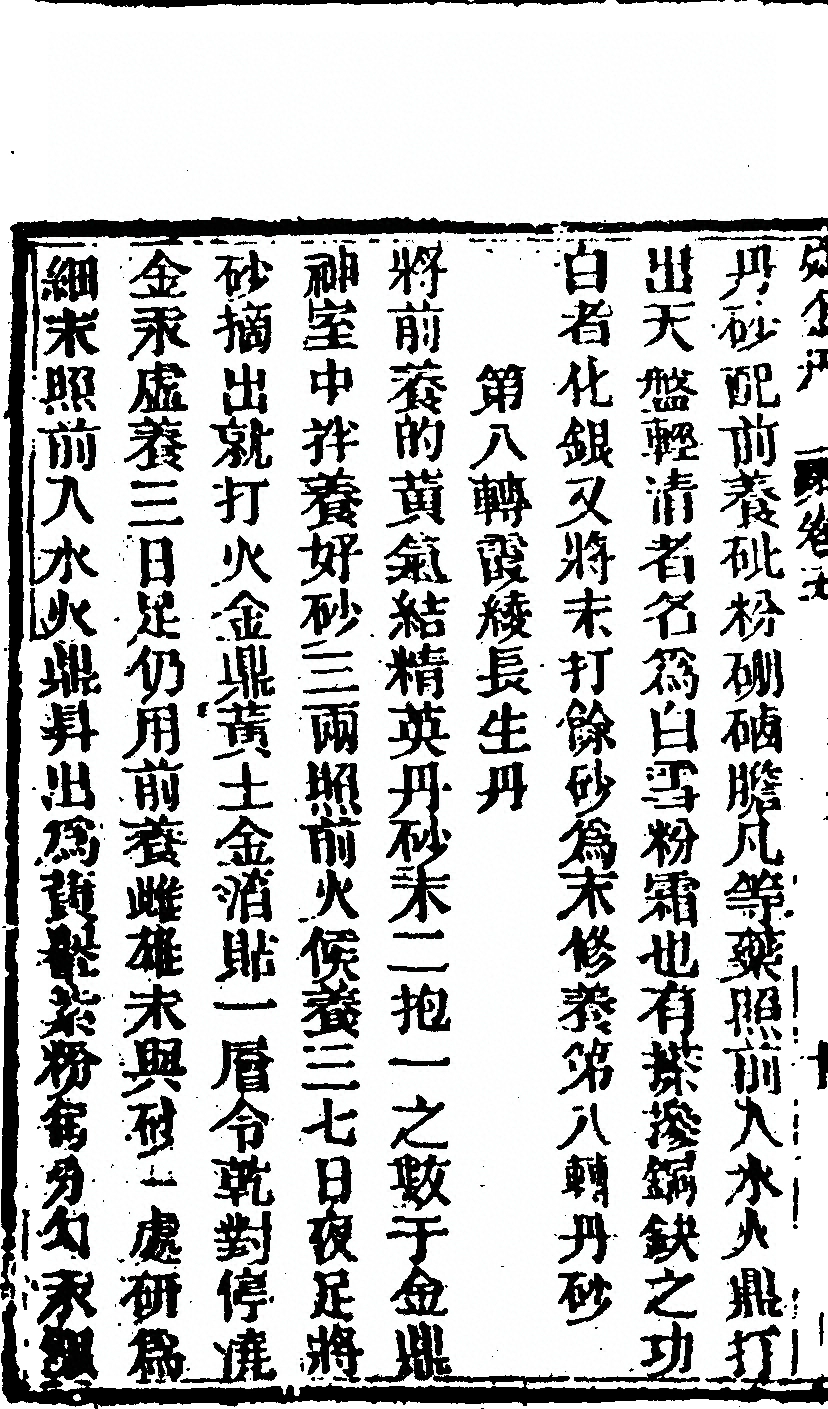 丹砂配前養砒粉硼硇膽凡等藥照前入水火鼎打
出天盤輕清者名為白雪粉霜也有搽摻銅鈌之功
白者化銀又將末打餘砂為末修養第八轉丹砂
第八轉霞綾長生丹
將前養的黃氣結精英丹砂末二抱一之數于金鼎
神室中拌養好砂三兩照前火候養三七日夜足將
砂摘出就打火金鼎黃土金消貼一層令乾對停澆
金汞虛養三日足仍用前養雌雄末與砂一處研為
細末照前入水火鼎昇出為黃轝紫粉每分勾汞